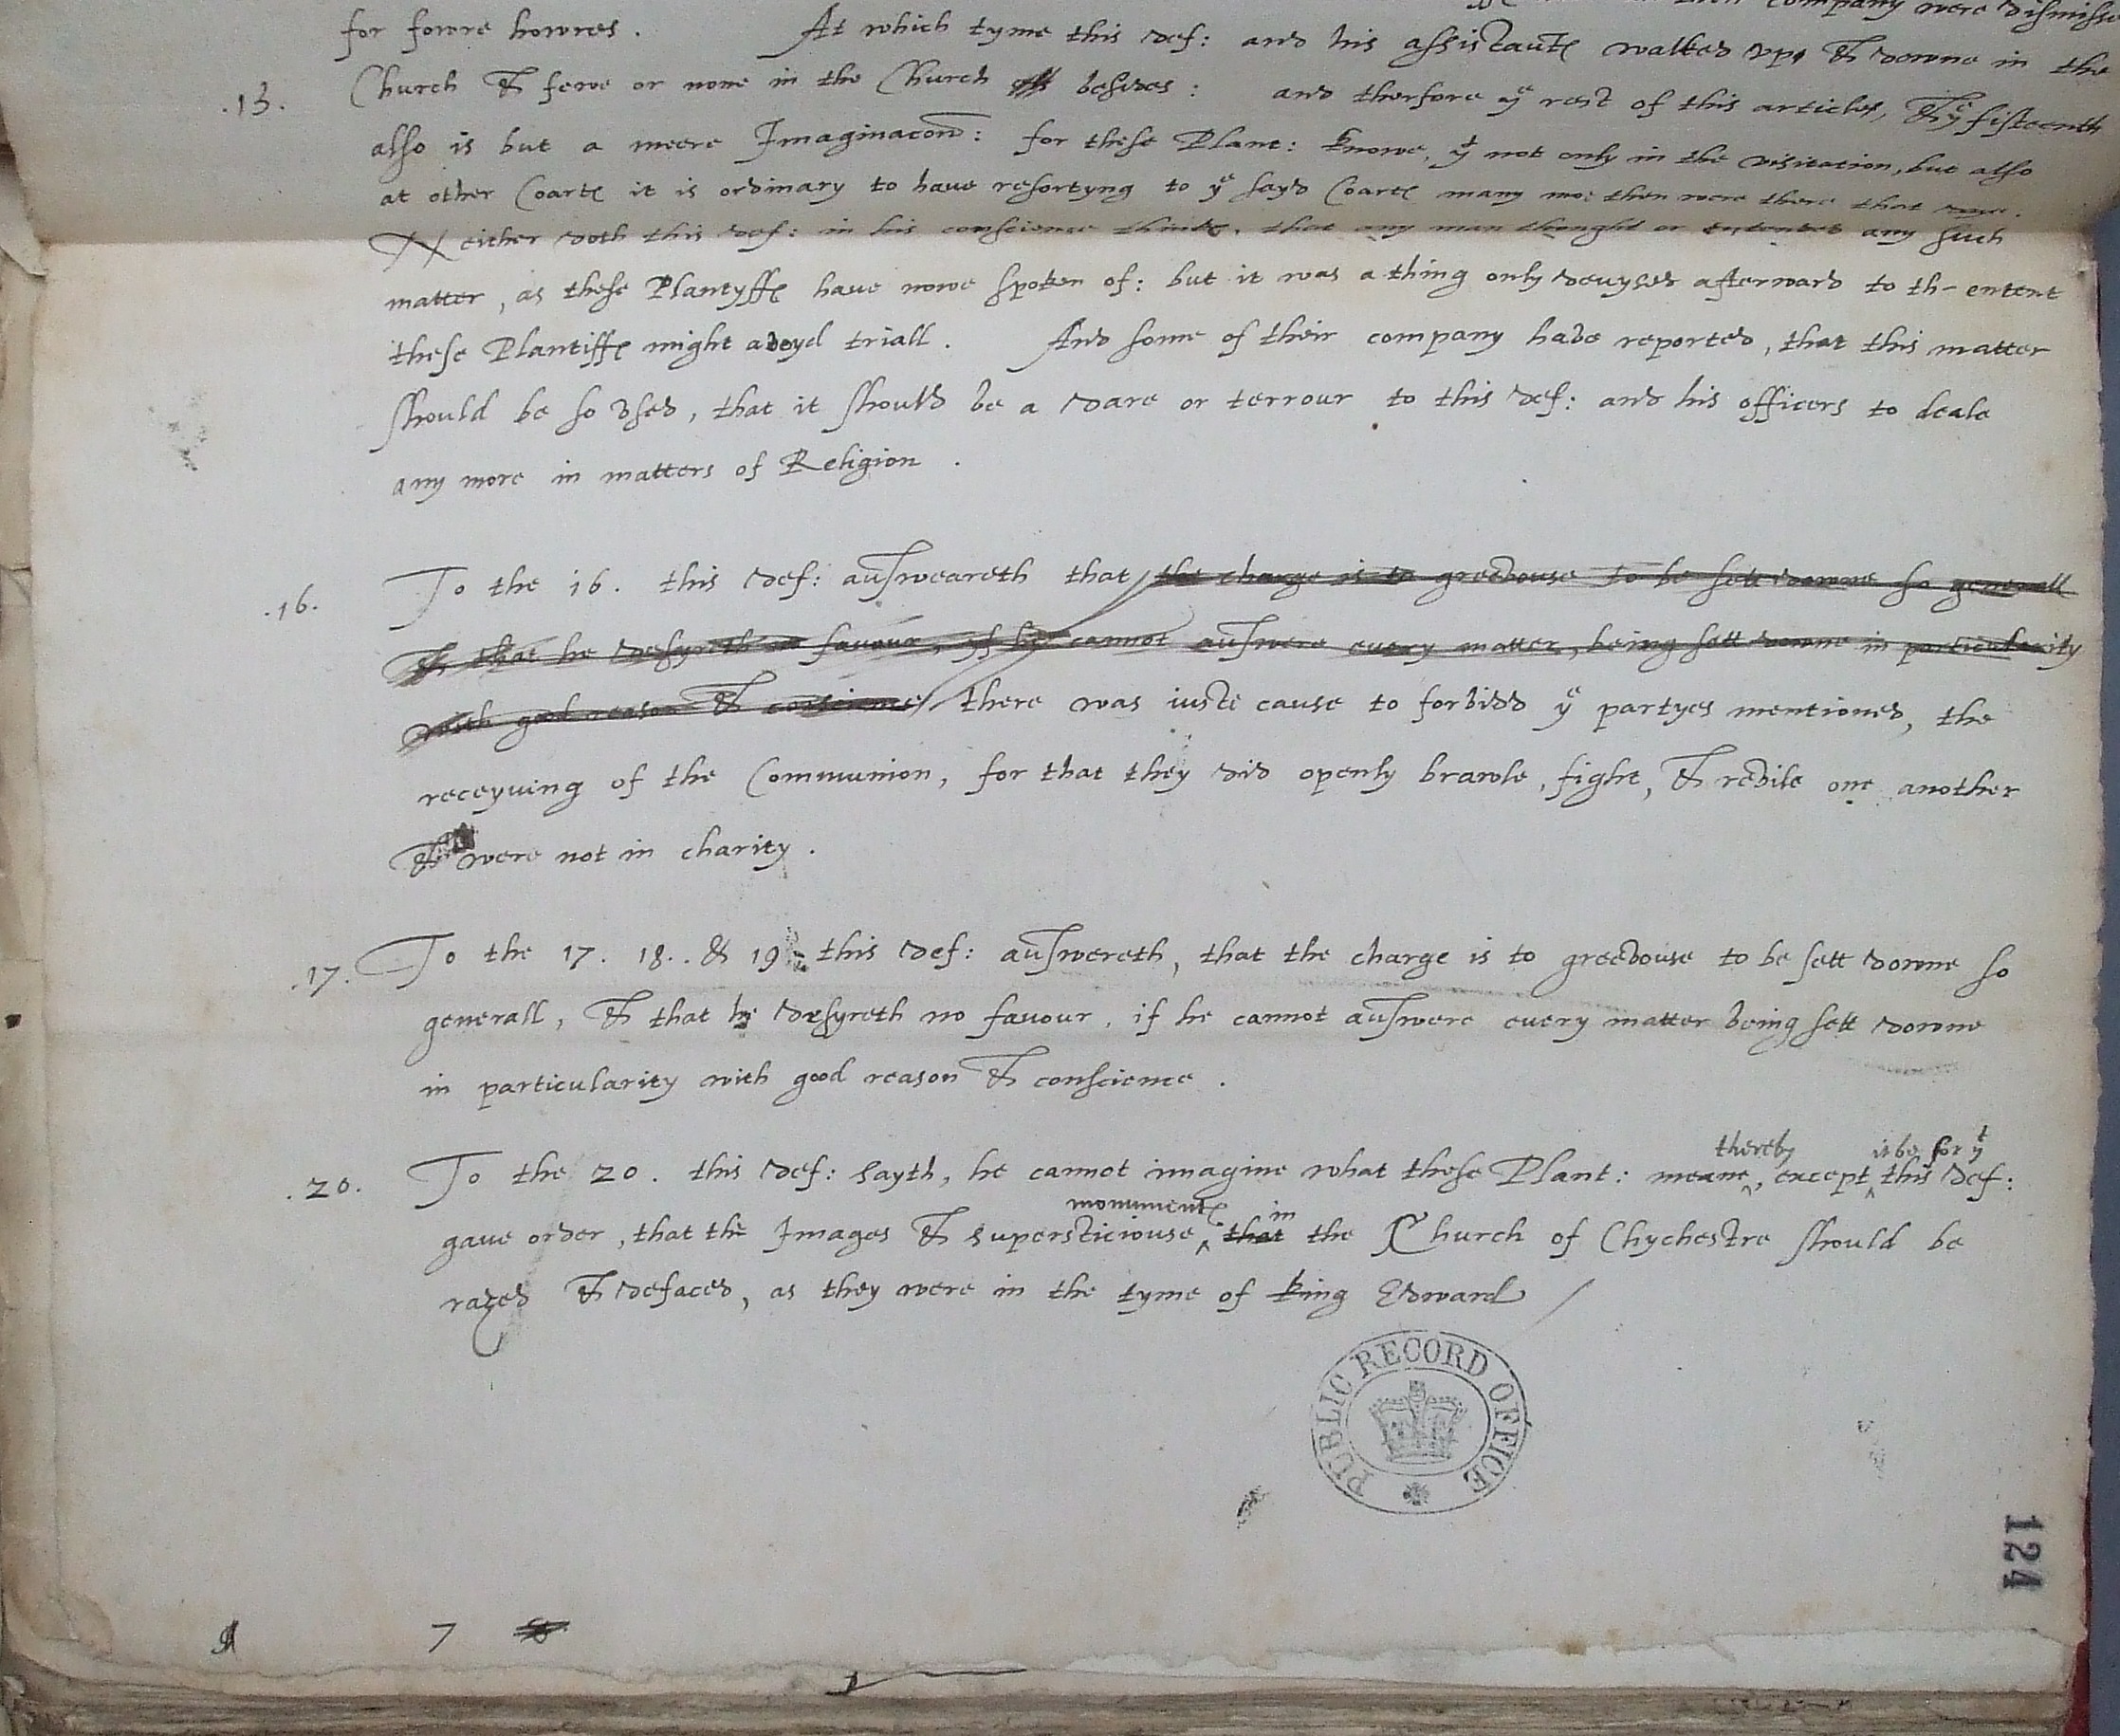 company were dismisse
for fowre howres . At which tyme this def: and his assistantes walked vp & downe in the
.13. Church & fewe or none in the Church besydes : and therfore ye rest of this articles, & ye fifteenth
also is but a meere Imaginacon : for these Plant: knowe, yt not only in the visitation, but also
at other Coartes it is ordinary to have resortyng to ye sayd Coartes many moe then were there that
Neither doth this def: in his conscience thinke, that any man thought or entented any such
matter, as these Plantyffes have nowe spoken of: but it was a thing only devysed afterward to th-entent
these Plantiffes might avoyd triall . And some of their company have reported, that this matter
should be so vsed, that it should be a dare or terrour to this def: and his officers to deale
any more in matters of Religion .
.16. To the 16. this def: answeareth that the charge is to greevouse to be sett downe so generall
& that he desyreth no favour, yf he cannot answere every matter, being sett downe in particularity
with good reason & conscience there was iuste cause to forbidd ye partyes mentioned, the
receyuing of the Communion, for that they did openly brawle, fight, & revile one another
& were not in charity .
.17. To the 17. 18. & 19 this def: answereth, that the charge is to greevouse to be sett downe so
generall, & that he desyreth no favour, if he cannot answere euery matter being sett downe
in particularity with good reason & conscience .
thereby it be for yt
.20. To the 20. this def: sayth, he cannot imagine what these Plant: meane, except this def:
monumentes in
gaue order, that the Images & supersticiouse that the Church of Chychestre should be
razed & defaced, as they were in the tyme of king Edward
PUBLIC RECORD OFFICE
124
7 8